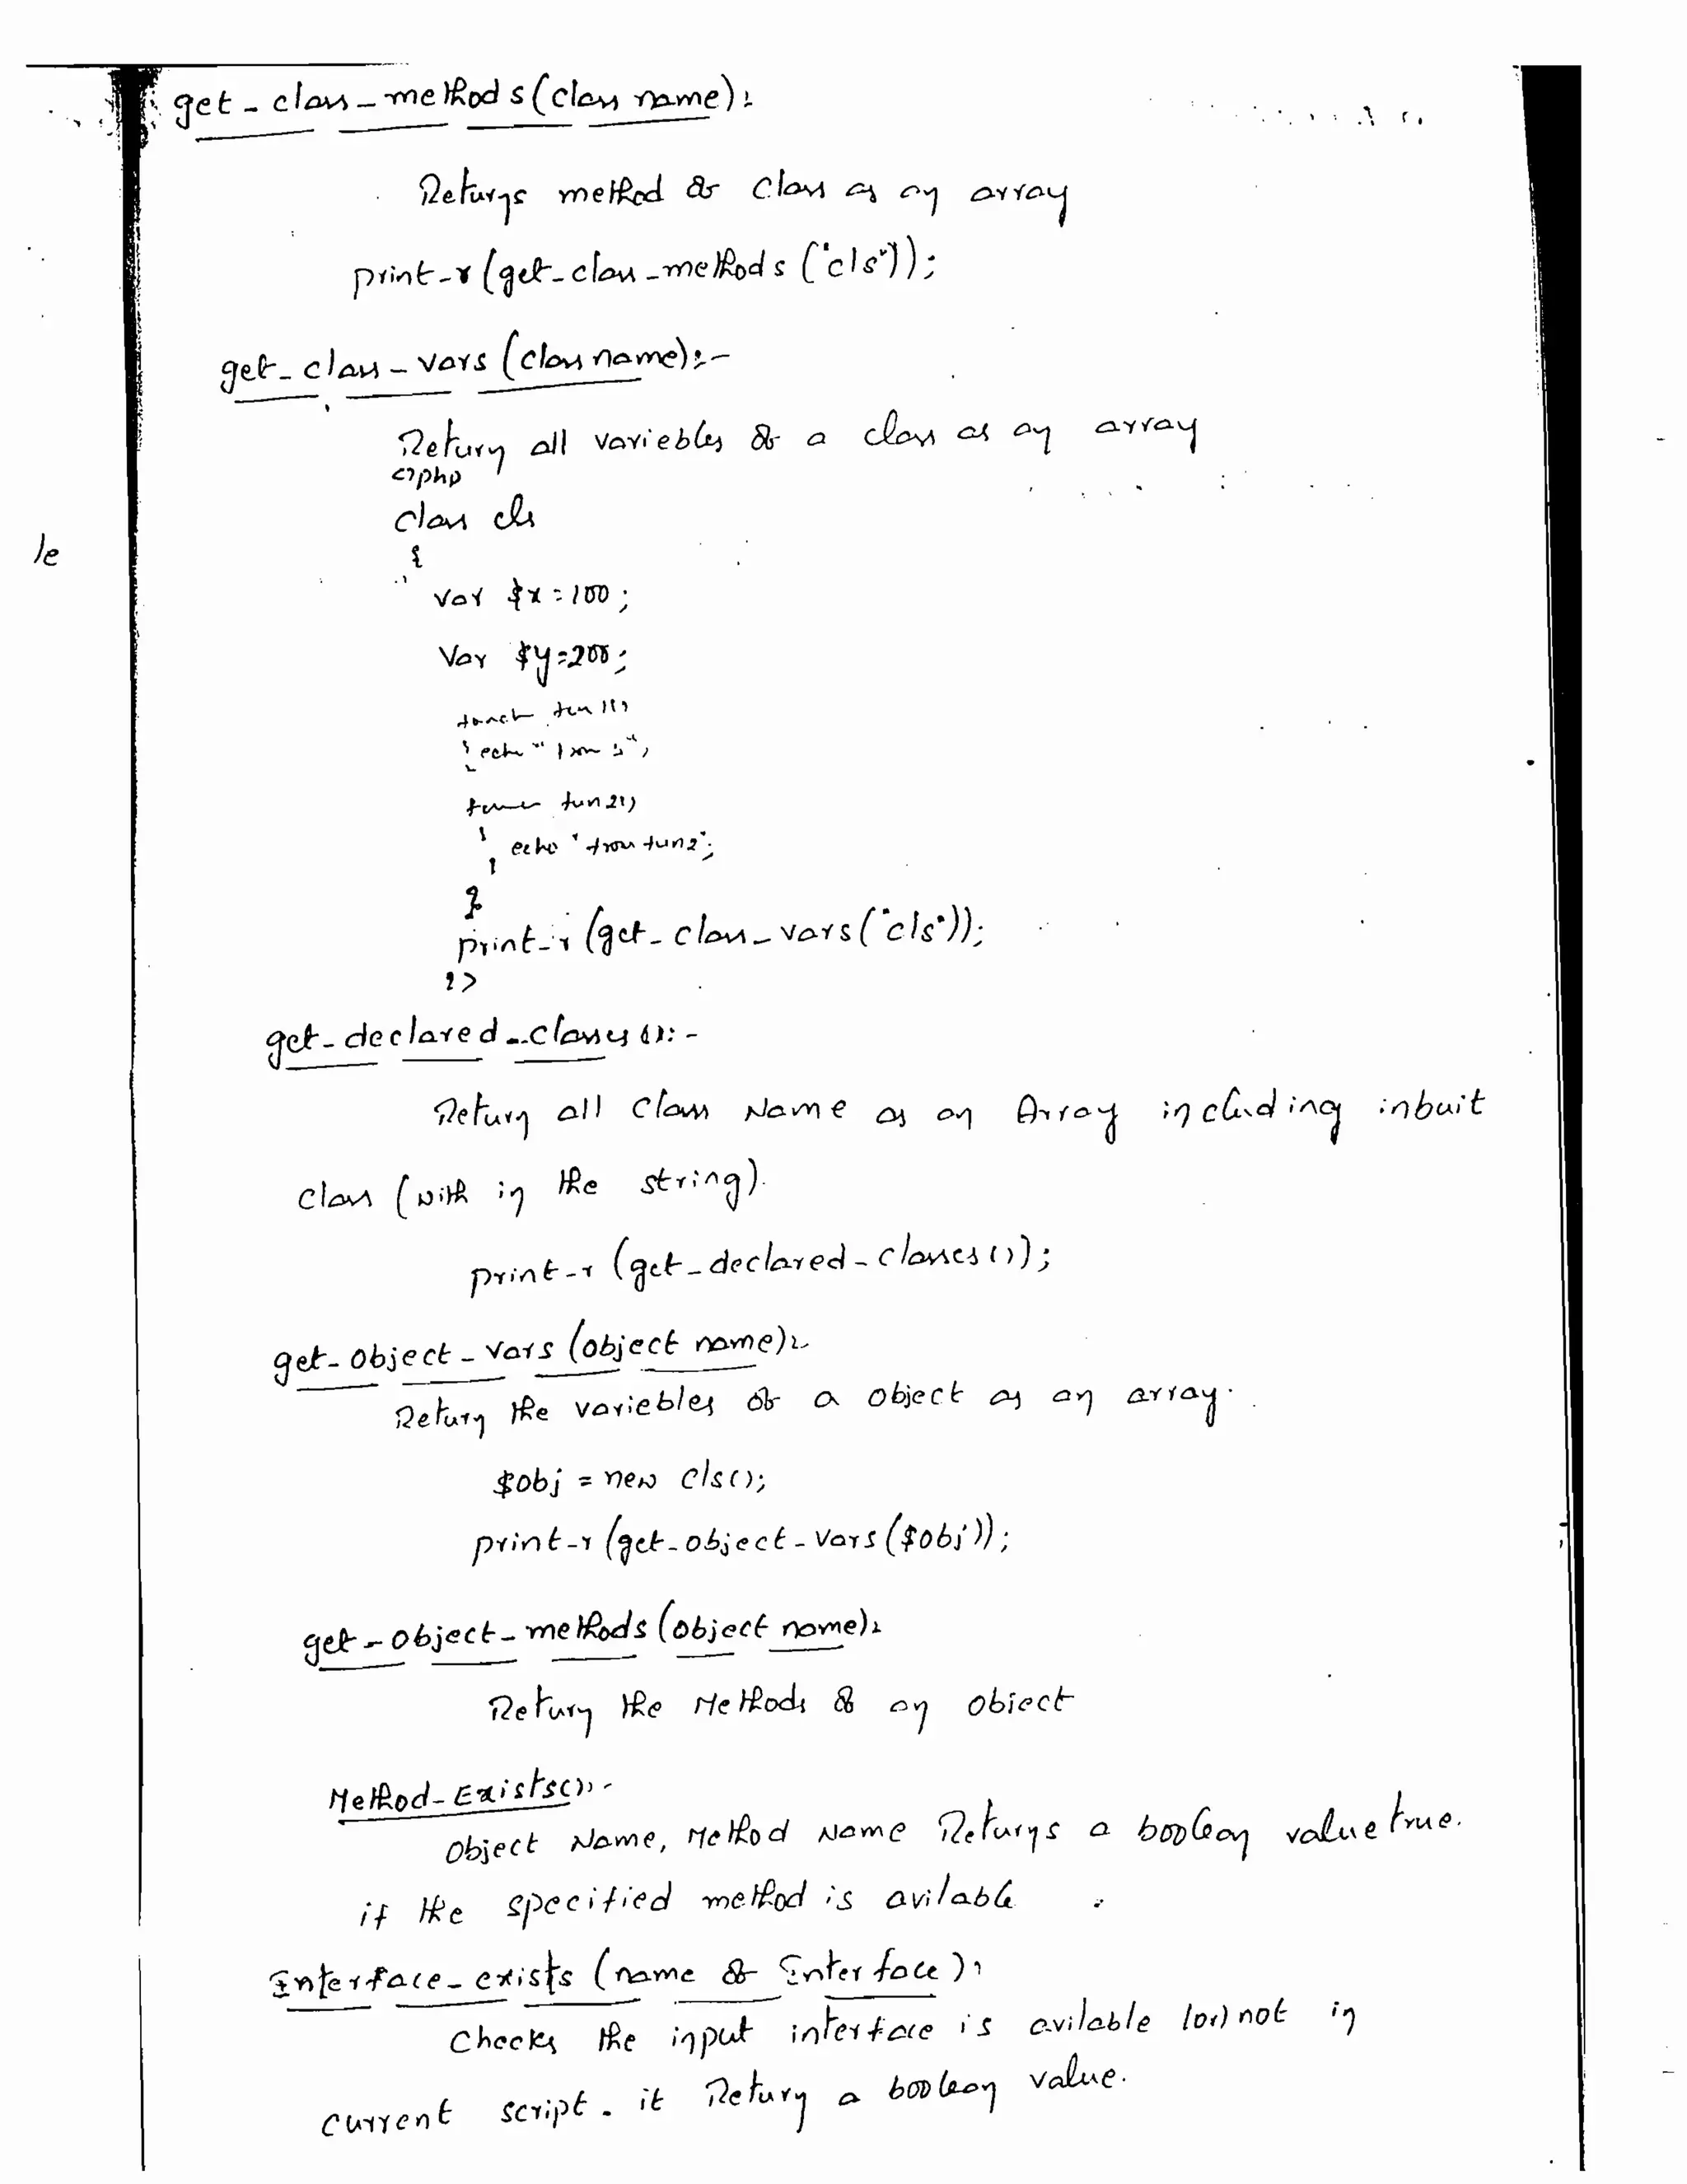 get_class_methods(class name):
Returns method of class as an array
print_r(get_class_methods("cls"));
get_class_vars(class name):-
Return all variebles of a class as an array
<?php
class cls
{
le
var $x=100;
Var $y=200;
fun1()
{ echo "
fun2()
{ echo "from fun2";
}
}
print_r(get_class_vars("cls"));
?>
get_declared_classes():-
Return all class Name as an Array including inbuit
class (with in the string).
print_r(get_declared_classes());
get_object_vars(object name):-
Return the variebles of a object as an array.
$obj = new cls();
print_r(get_object_vars($obj));
get_object_methods(object name):
Return the Methods of an object
Method_Exists():-
Object Name, Method Name Returns a boolean value true.
if the specified method is avilable
Interface_exists (name of Interface):
Checks the input interface is avilable (or) not in
current script. it Return a boolean value.